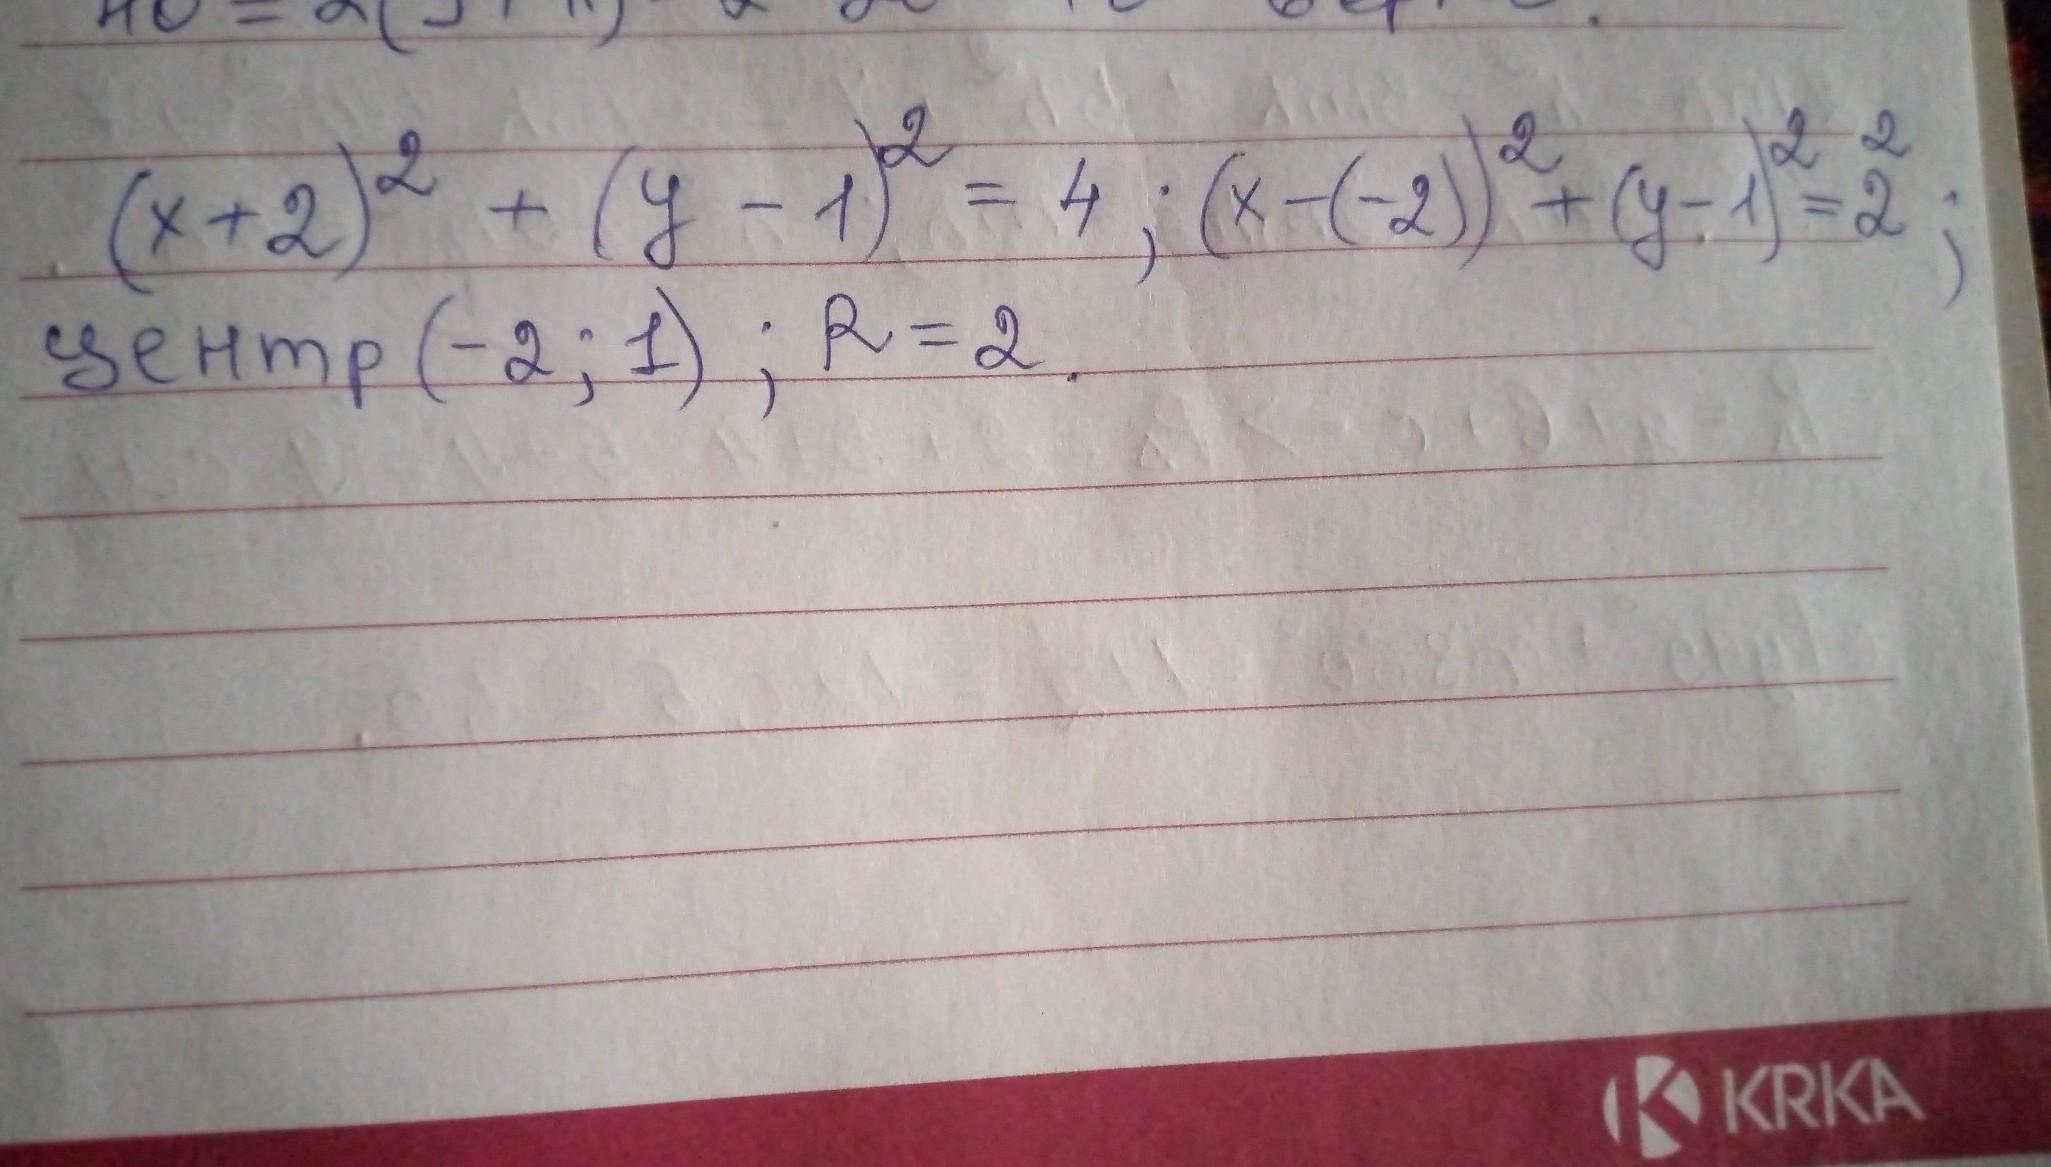 (x+2)² + (y-1)² = 4; (x-(-2))² + (y-1)² = 2²;
центр (-2; 1); R = 2.
KRKA